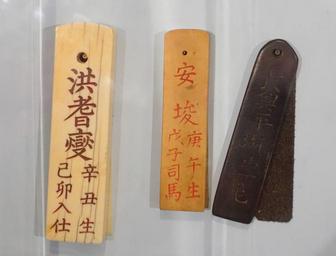 洪耆燮
辛丑生
己卯入仕
安埈
庚午生
戊子司馬